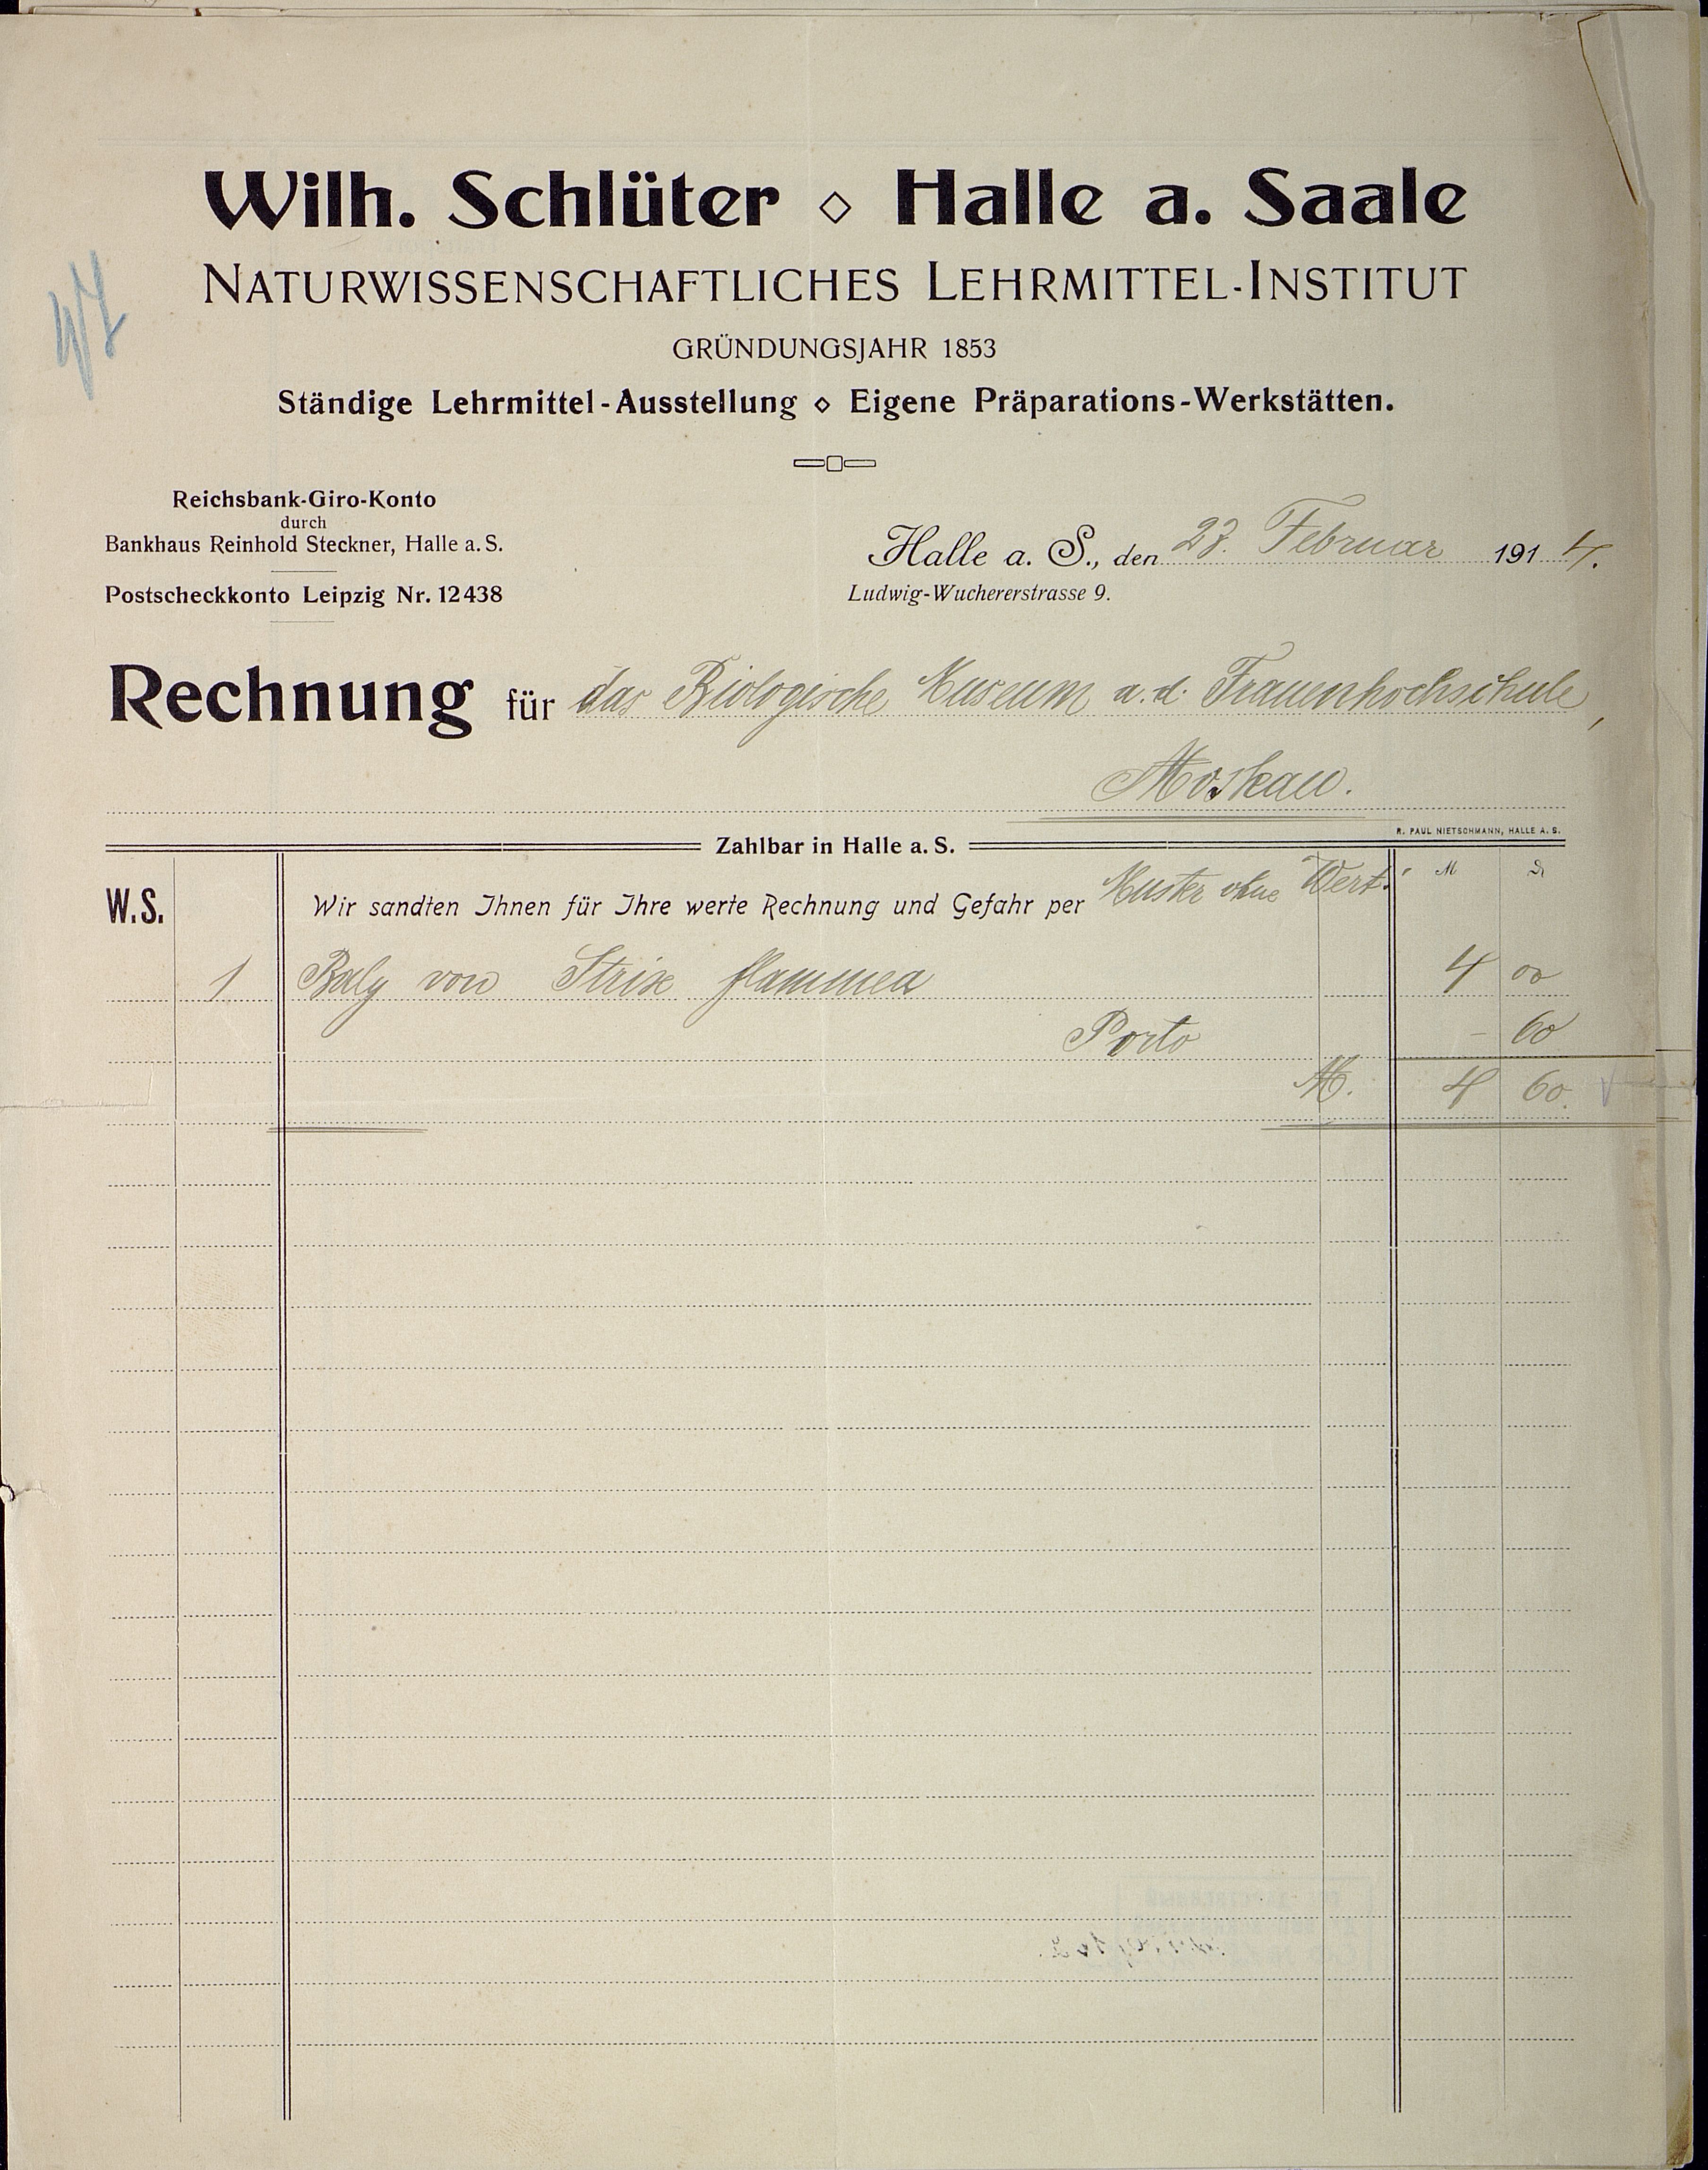 Wilh. Schlüter ◇ Halle a. Saale
NATURWISSENSCHAFTLICHES LEHRMITTEL-INSTITUT
GRÜNDUNGSJAHR 1853
Ständige Lehrmittel-Ausstellung ◇ Eigene Präparations-Werkstätten.
47
Reichsbank-Giro-Konto
durch
Bankhaus Reinhold Steckner, Halle a. S.
Postscheckkonto Leipzig Nr. 12438
Halle a. S., den 23. Februar 1914.
Ludwig-Wuchererstrasse 9.
Rechnung für das Biologische Museum a. d. Frauenhochschule,
Moskau.
R. PAUL NIETSCHMANN, HALLE A. S.
Zahlbar in Halle a. S.
W.S. Wir sandten Ihnen für Ihre werte Rechnung und Gefahr per Muster ohne Wert: M ₰
1 Balg von Strix flammea 4 00
Porto - 60
M. 4 60.